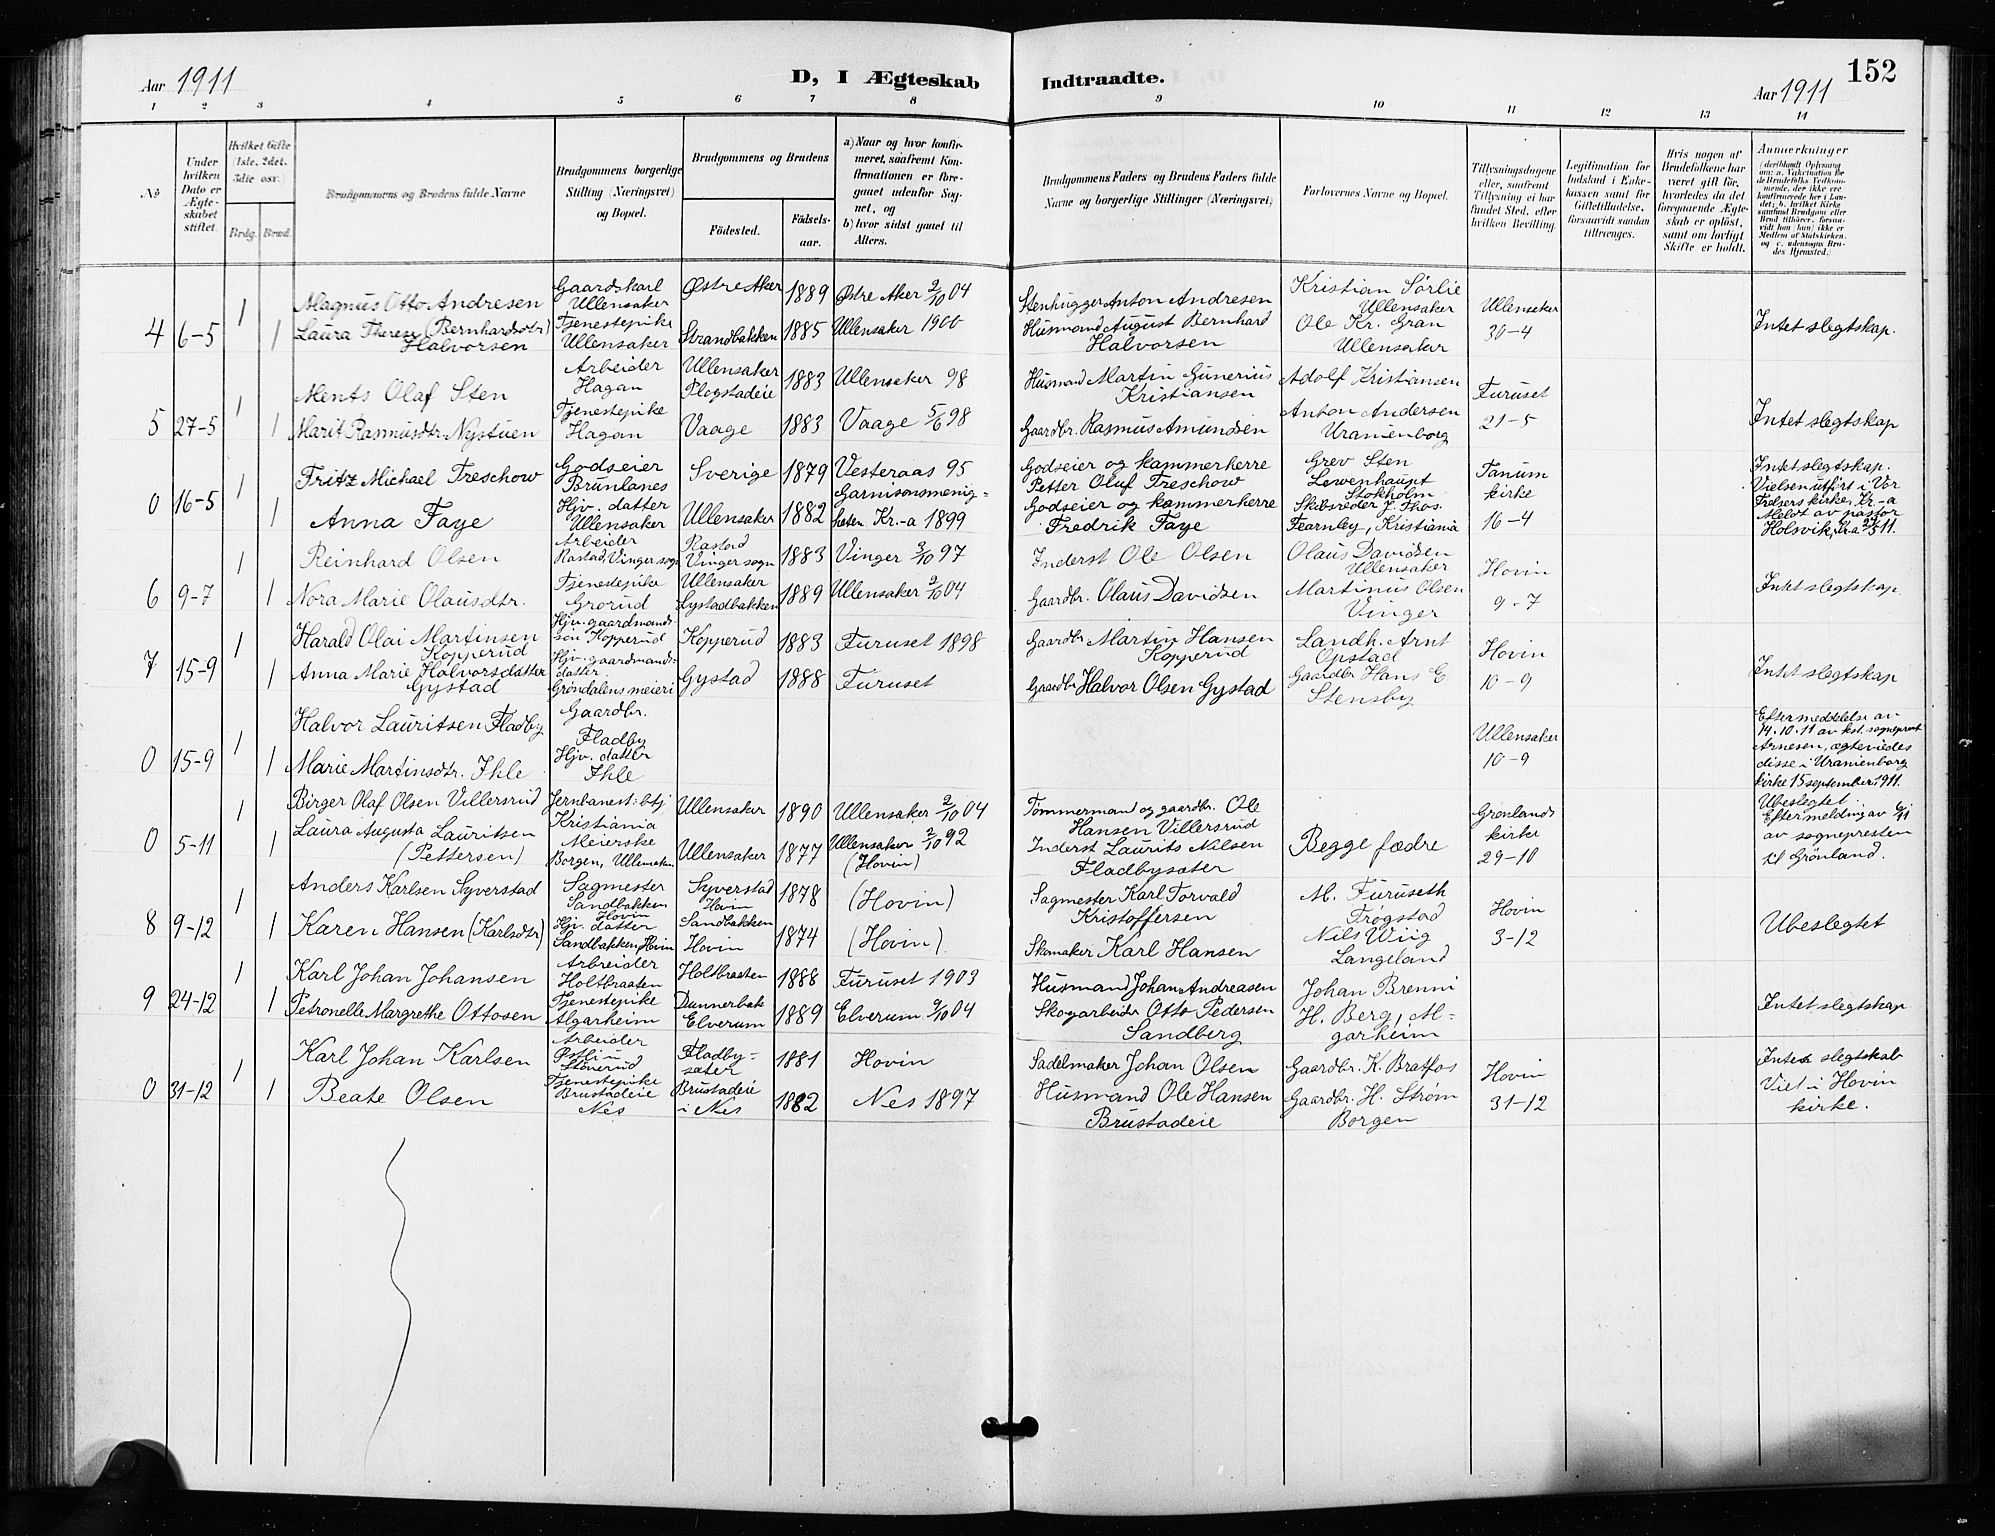 Aar 1911
D, I Ægteskab
Indtraadte.
152
Aar 1911
1 2 3 4 5 6 7 8 9 10 11 12 13 14
No
Under hvilken Dato er Ægteskabet stiftet.
Hvilket Gifte (1ste, 2det, 3die osv.)
Brdg. Brud.
Brudgommens og Brudens fulde Navne
Brudgommens borgerlige Stilling (Næringsvei) og Bopæl.
Brudgommens og Brudens
Fødested.
Fødselsaar.
a) Naar og hvor konfirmeret, saafremt Konfirmationen er foregaaet udenfor Sognet, og
b) hvor sidst gaaet til Alters.
Brudgommens Faders og Brudens Faders fulde Navne og borgerlige Stillinger (Næringsvei)
Forlovernes Navne og Bopæl.
Tillysningsdagene eller, saafremt Tillysning ei har fundet Sted, efter hvilken Bevilling.
Legitimation for Indskud i Enkekassen samt for Giftetilladelse, forsaavidt saadan tiltrænges.
Hvis nogen af Brudefolkene har været gift før, hvorledes da det foregaaende Ægteskab er opløst, samt om lovligt Skifte er holdt.
Anmerkninger
(deriblandt Oplysning om: a. Vakcination for de Brudefolks Vedkommende, der ikke ere konfirmerede her i Landet; b. hvilket Kirkesamfund Brudgom eller Brud tilhører, forsaavidt han (hun) ikke er Medlem af Statskirken, og c. udensogns Brudes Hjemsted.)
4 6-5 1 Magnus Otto Andresen Gaardskarl Ullensaker Østre Aker 1889 Østre Aker 2/10 04 Stenhugger Anton Andresen Kristian Sørlie Ullensaker Ullensaker 30-4
1 Laura Therese (Bernhardsdtr) Halvorsen Tjenestepike Ullensaker Strandbakken 1885 Ullensaker 1900 Husmand August Bernhard Halvorsen Ole Kr. Gran Ullensaker Intet slegtskap.
5 27-5 1 Ments Olaf Sten Arbeider Hagan Ullensaker Plogstadeie 1883 Ullensaker 98 Husmand Martin Gunerius Kristiansen Adolf Kristiansen Furuset 21-5
1 Marit Rasmusdtr Nystuen Tjenestepike Hagan Vaage 1883 Vaage 5/6 98 Gaardbr. Rasmus Amundsen Anton Andersen Uranienborg Intet slegtskap
0 16-5 1 Fritz Michael Treschow Godseier Brunlanes Sverige 1879 Vesteraas 95 Godseier og kammerherre Petter Oluf Treschow Grev Sten Lewenhaupt Stokholm Tanum kirke 16-4
1 Anna Faye Hjv. datter Ullensaker Ullensaker 1882 Garnisonsmenigheten Kr.-a 1899 Godseier og kammerherre Fredrik Faye Skibsreder J. Thos. Fearnley, Kristiania Intet slegtskap. Vielsen utført i Vor Frelsers kirke, Kr-a Meldt av pastor Holsvik, Kra 27/5 11.
6 9-7 1 Reinhard Olsen Arbeider Rastad, Vinger sogn Rastad Vinger sogn 1883 Vinger 3/10 97 Inderst Ole Olsen Olaus Davidsen Ullensaker Hovin 9-7
1 Nora Marie Olausdtr. Tjenestepike Grorud Ullensaker Lystadbakken 1889 Ullensaker 2/10 04 Gaardbr. Olaus Davidsen Martinus Olsen Vinger Intet slegtskap.
7 15-9 1 Harald Olai Martinsen Kopperud Hjv. gaardmandssøn Kopperud Kopperud 1883 Furuset 1898 Gaardbr Martin Hansen Kopperud Landh. Arnt Opstad Hovin 10-9
1 Anna Marie Halvorsdatter Gystad Hjv. gaardmandsdatter. Grøndalens meieri Gystad 1888 Furuset Gaardbr Halvor Olsen Gystad Gaardbr Hans E. Stensby Intet slegtskap
0 15-9 1 Halvor Lauritsen Fladby Gaardbr. Fladby Ullensaker 10-9
1 Marie Martinsdtr. Ihle Hjv. datter Ihle Efter meddelelse av 14.10.11 av kst. sogneprest Arnesen, ægteviedes disse i Uranienborg kirke 15 september 1911.
0 5-11 1 Birger Olaf Olsen Villersrud Jernbanest:btj Kristiania Ullensaker 1890 Ullensaker 2/10 04 Tømmermand og gaardbr. Ole Hansen Villersrud Begge fædre Grønlands kirke 29-10
1 Laura Augusta Lauritsen (Pettersen) Meierske Borgen, Ullensaker Ullensaker 1877 Ullensaker 2/10 92 (Hovin) Inderst Laurits Nilsen Fladbysæter Ubeslegtet. Efter melding av 6/11 11 av sognepresten til Grönland.
8 9-12 1 Anders Karlsen Syverstad Sagmester Sandbakken Hovin Syverstad Hovin 1878 (Hovin) Sagmester Karl Torvald Kristoffersen M. Furuseth Trøgstad Hovin 3-12
1 Karen Hansen (Karlsdtr) Hjv. datter Sandbakken, Hovin Sandbakken Hovin 1874 (Hovin) Skomaker Karl Hansen Nils Wiig Langeland Ubeslegtet
9 24-12 1 Karl Johan Johansen Arbeider Holtbraaten Holtbraaten 1888 Furuset 1903 Husmand Johan Andreasen Johan Brenni
1 Petronelle Margrethe Ottosen Tjenestepike Algarheim Dunnerbak Elverum 1889 Elverum 9/10 04 Skogarbeider Otto Pedersen Sandberg H. Berg, Algarheim Intet slegtskap
0 31-12 1 Karl Johan Karlsen Arbeider Østli u Støverud Fladbysæter 1881 Hovin Sadelmaker Johan Olsen Gaardbr. K. Bratfos Hovin 31-12
1 Beate Olsen Tjenestepike Brustadeie Nes Brustadeie i Nes 1882 Nes 1897 Husmand Ole Hansen Brustadeie Gaardbr. H. Strøm Borgen Intet slegtskab Viet i Hovin kirke.